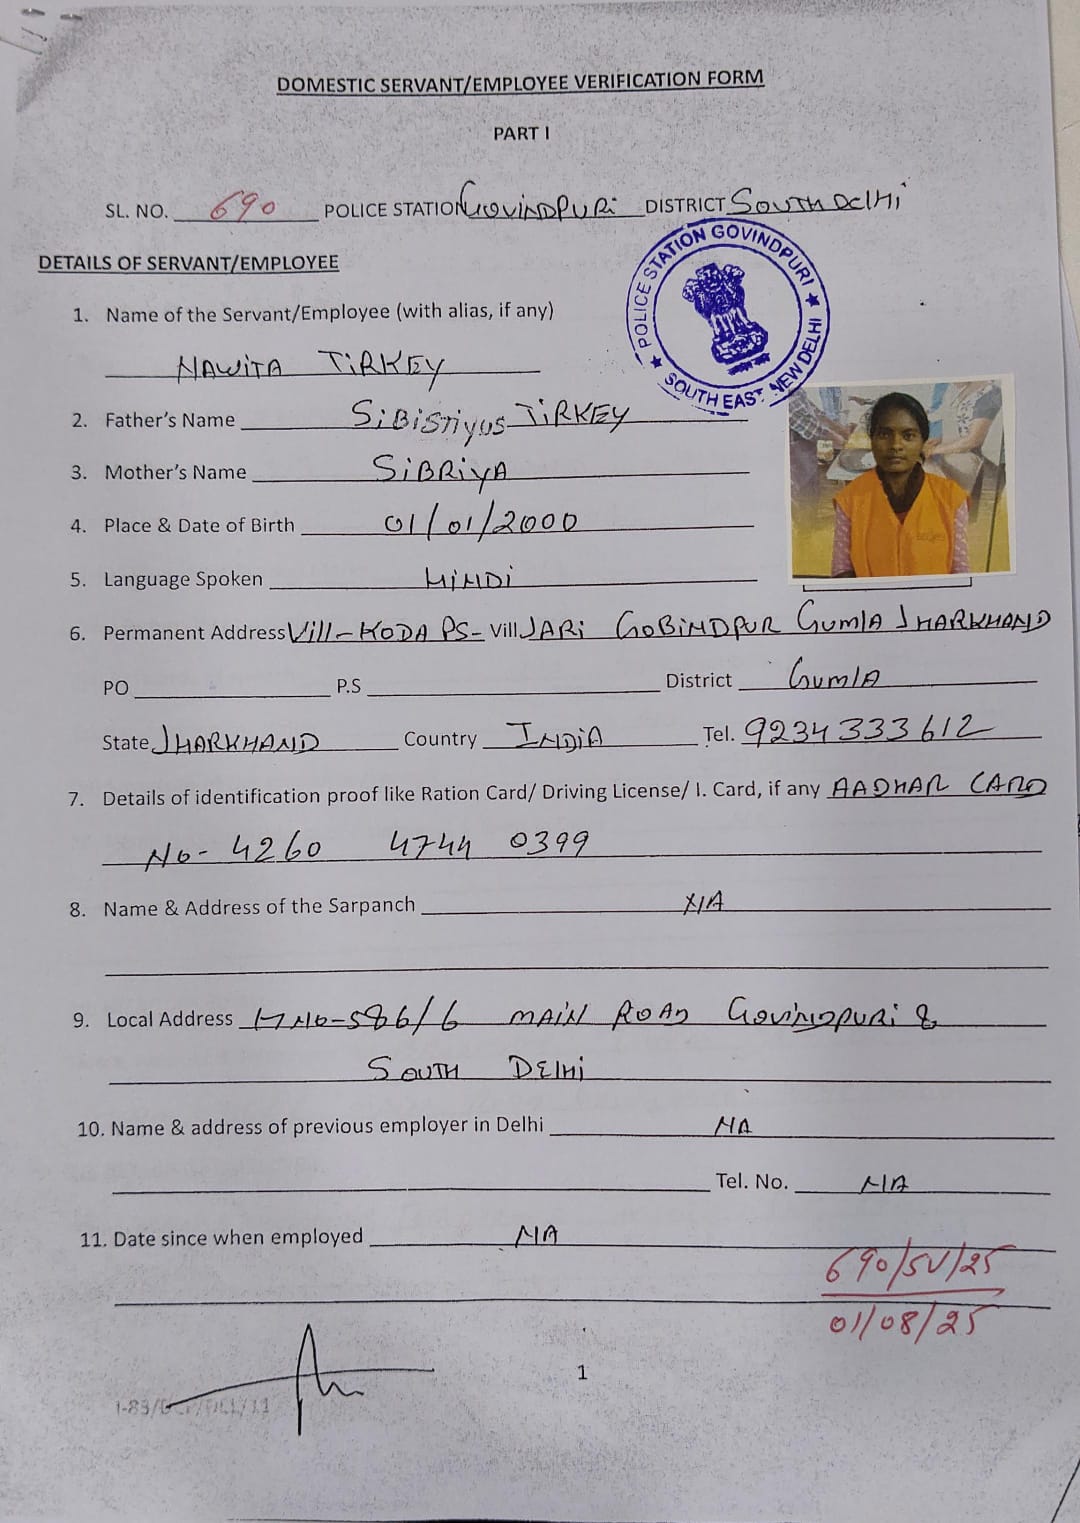 DOMESTIC SERVANT/EMPLOYEE VERIFICATION FORM
PART I
SL. NO. 690 POLICE STATION GOVINDPURI DISTRICT SOUTH DELHI
POLICE STATION GOVINDPURI ★ SOUTH EAST NEW DELHI ★
DETAILS OF SERVANT/EMPLOYEE
1. Name of the Servant/Employee (with alias, if any)
NAWITA TIRKEY
2. Father's Name SIBISTIYUS TIRKEY
3. Mother's Name SIBRIYA
4. Place & Date of Birth 01/01/2000
5. Language Spoken HINDI
6. Permanent Address Vill- KODA PS- Vill JARI GOBINDPUR GUMLA JHARKHAND
PO P.S District GUMLA
State JHARKHAND Country INDIA Tel. 9234333612
7. Details of identification proof like Ration Card/ Driving License/ I. Card, if any AADHAR CARD
No- 4260 4744 0399
8. Name & Address of the Sarpanch N/A
9. Local Address H NO-586/6 MAIN ROAD GOVINDPURI
SOUTH DELHI
10. Name & address of previous employer in Delhi NA
Tel. No. NA
11. Date since when employed NA
690/SV/25
01/08/25
1